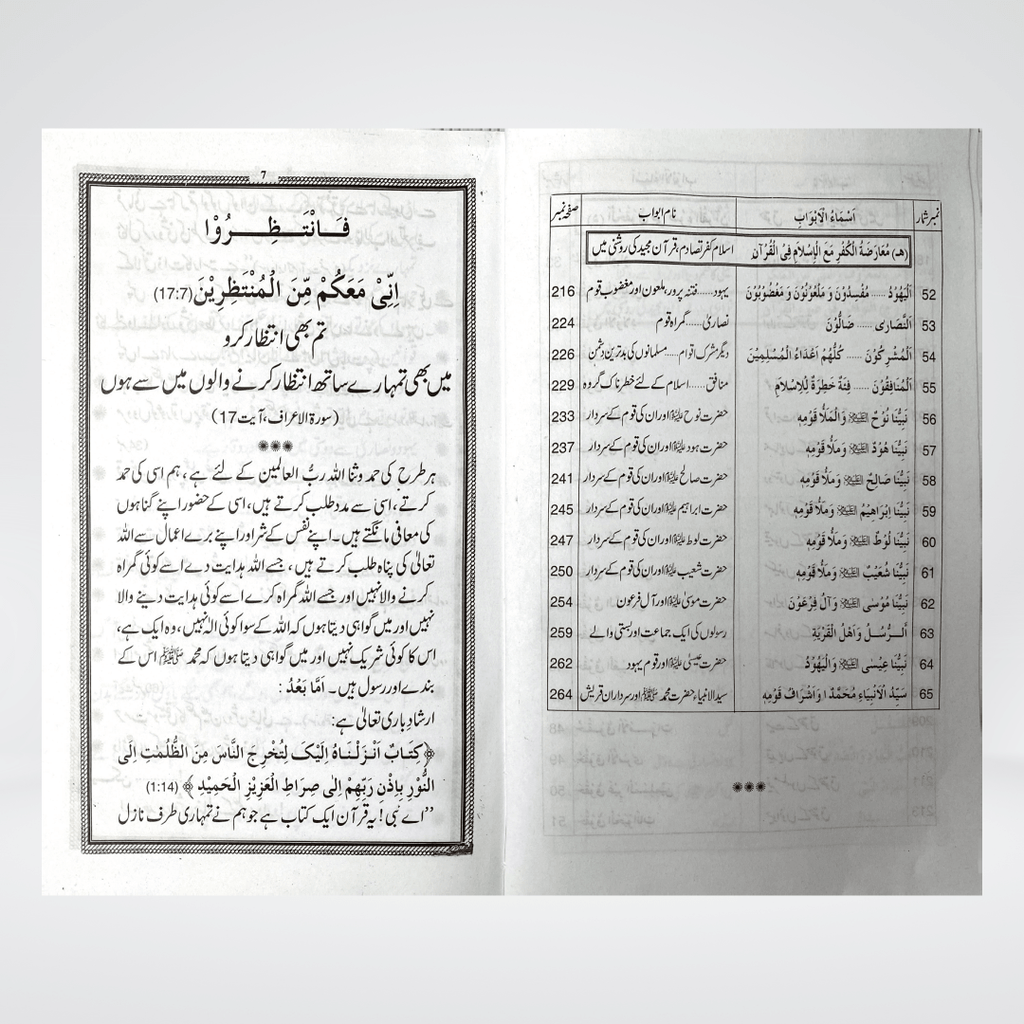 نمبر شمار اَسْمَاءُ الْاَبْوَابِ نام ابواب صفحہ نمبر
(ھ) مُعَارَضَةُ الْكُفْرِ مَعَ الْإِسْلَامِ فِى الْقُرْآنِ اسلام کفر تصادم، قرآن مجید کی روشنی میں
52 اَلْيَهُوْدُ ...... مُفْسِدُوْنَ وَ مَلْعُوْنُوْنَ وَ مَغْضُوْبُوْنَ یہود...... فتنہ پرور، ملعون اور مغضوب قوم 216
53 اَلنَّصَارٰى ...... ضَالُّوْنَ نصاریٰ...... گمراہ قوم 224
54 اَلْمُشْرِكُوْنَ ...... كُلُّهُمْ اَعْدَاءُ الْمُسْلِمِيْنَ دیگر مشرک اقوام...... مسلمانوں کی بدترین دشمن 226
55 اَلْمُنَافِقُوْنَ ...... فِئَةٌ خَطِرَةٌ لِلْاِسْلَامِ منافق...... اسلام کے لئے خطرناک گروہ 229
56 نَبِيُّنَا نُوْحٌ ؑ وَالْمَلَأُ قَوْمِهٖ حضرت نوح ؑ اور ان کی قوم کے سردار 233
57 نَبِيُّنَا هُوْدٌ ؑ وَمَلَأُ قَوْمِهٖ حضرت ہود ؑ اور ان کی قوم کے سردار 237
58 نَبِيُّنَا صَالِحٌ ؑ وَمَلَأُ قَوْمِهٖ حضرت صالح ؑ اور ان کی قوم کے سردار 241
59 نَبِيُّنَا اِبْرَاهِيْمُ ؑ وَمَلَأُ قَوْمِهٖ حضرت ابراہیم ؑ اور ان کی قوم کے سردار 245
60 نَبِيُّنَا لُوْطٌ ؑ وَمَلَأُ قَوْمِهٖ حضرت لوط ؑ اور ان کی قوم کے سردار 247
61 نَبِيُّنَا شُعَيْبٌ ؑ وَمَلَأُ قَوْمِهٖ حضرت شعیب ؑ اور ان کی قوم کے سردار 250
62 نَبِيُّنَا مُوْسٰى ؑ وَآلُ فِرْعَوْنَ حضرت موسیٰ ؑ اور آل فرعون 254
63 اَلرُّسُلُ وَاَهْلُ الْقَرْيَةِ رسولوں کی ایک جماعت اور بستی والے 259
64 نَبِيُّنَا عِيْسٰى ؑ وَالْيَهُوْدُ حضرت عیسیٰ ؑ اور قوم یہود 262
65 سَيِّدُ الْاَنْبِيَاءِ مُحَمَّدٌ ا وَاَشْرَافُ قَوْمِهٖ سید الانبیاء حضرت محمد ﷺ اور سرداران قریش 264
7
فَانْتَظِرُوْا
اِنِّىْ مَعَكُمْ مِّنَ الْمُنْتَظِرِيْنَ (17:7)
تم بھی انتظار کرو
میں بھی تمہارے ساتھ انتظار کرنے والوں میں سے ہوں
(سورۃ الاعراف، آیت 17)
ہر طرح کی حمد و ثنا اللہ ربُّ العالمین کے لئے ہے، ہم اسی کی حمد
کرتے، اسی سے مدد طلب کرتے ہیں، اسی کے حضور اپنے گناہوں
کی معافی مانگتے ہیں۔ اپنے نفس کے شر اور اپنے برے اعمال سے اللہ
تعالیٰ کی پناہ طلب کرتے ہیں، جسے اللہ ہدایت دے اسے کوئی گمراہ
کرنے والا نہیں اور جسے اللہ گمراہ کرے اسے کوئی ہدایت دینے والا
نہیں اور میں گواہی دیتا ہوں کہ اللہ کے سوا کوئی الٰہ نہیں، وہ ایک ہے،
اس کا کوئی شریک نہیں اور میں گواہی دیتا ہوں کہ محمد ﷺ اس کے
بندے اور رسول ہیں۔ اَمَّا بَعْدُ:
ارشادِ باری تعالیٰ ہے:
﴿كِتَابٌ اَنْزَلْنَاهُ اِلَيْكَ لِتُخْرِجَ النَّاسَ مِنَ الظُّلُمٰتِ اِلَى
النُّوْرِ بِاِذْنِ رَبِّهِمْ اِلٰى صِرَاطِ الْعَزِيْزِ الْحَمِيْدِ﴾ (1:14)
”اے نبی! یہ قرآن ایک کتاب ہے جو ہم نے تمہاری طرف نازل